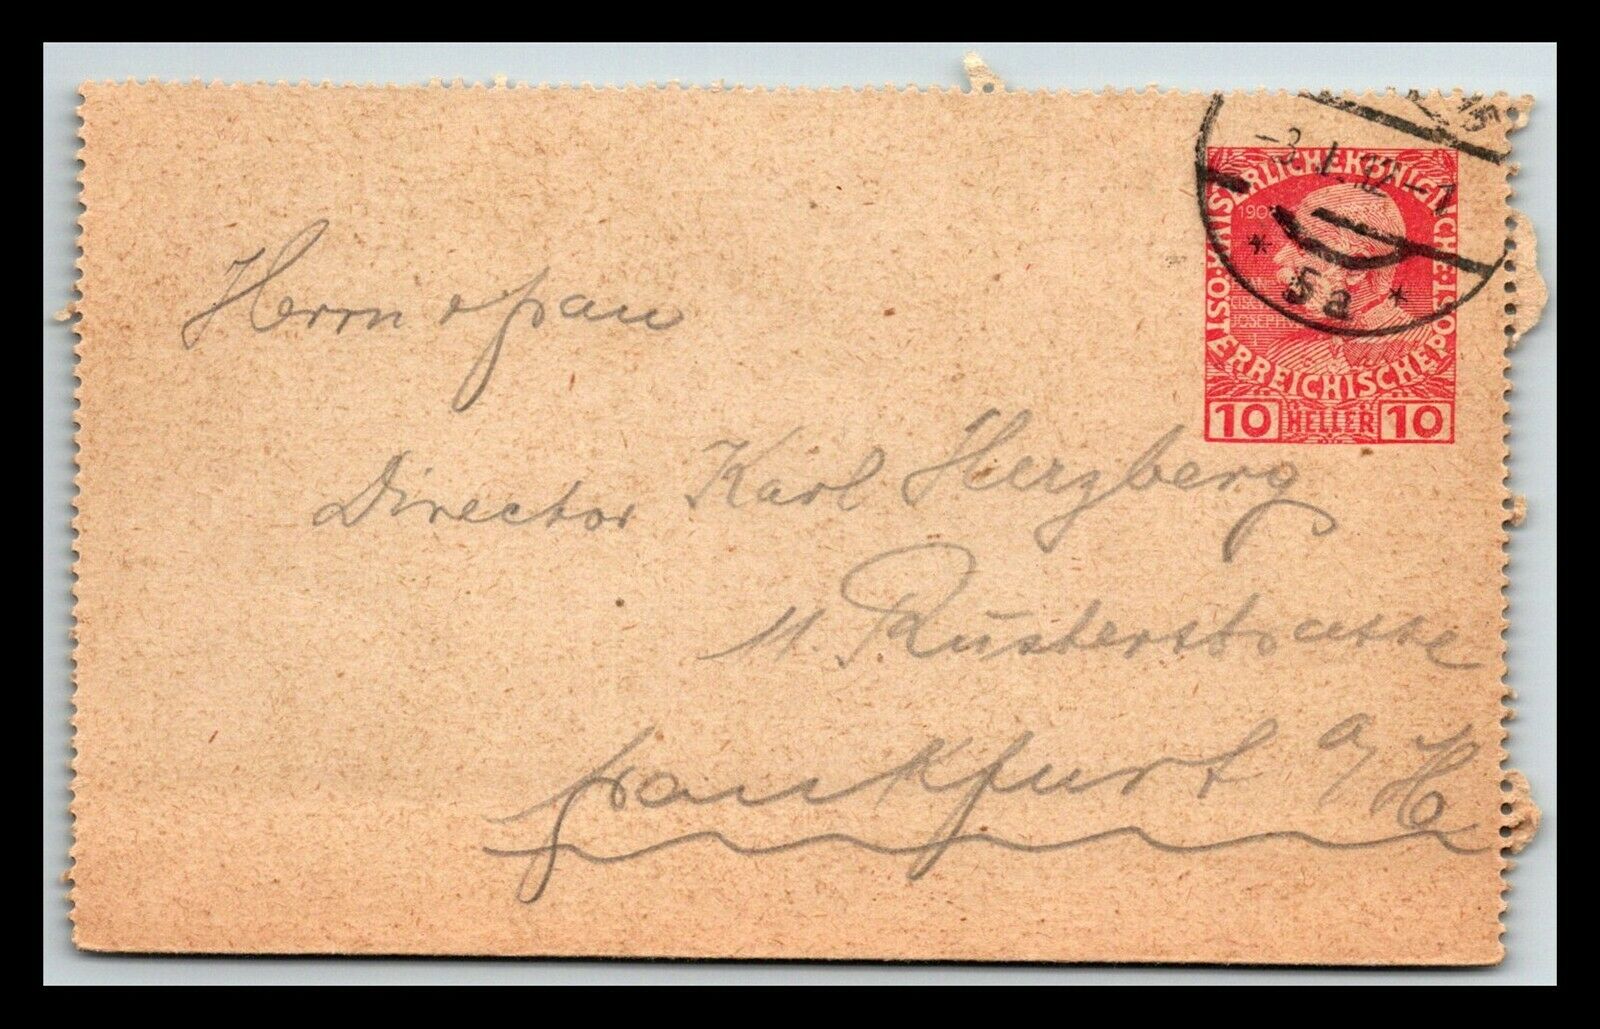 -3. I. 12-1
* 5a *
K.K. ÖSTERREICHISCHE POST · KAISERLICHE KÖNIGLICHE
1908
JOSEPH I
10 HELLER 10
Herrn
Director Karl Herzberg
11. Rüsterstrasse
Frankfurt a/M